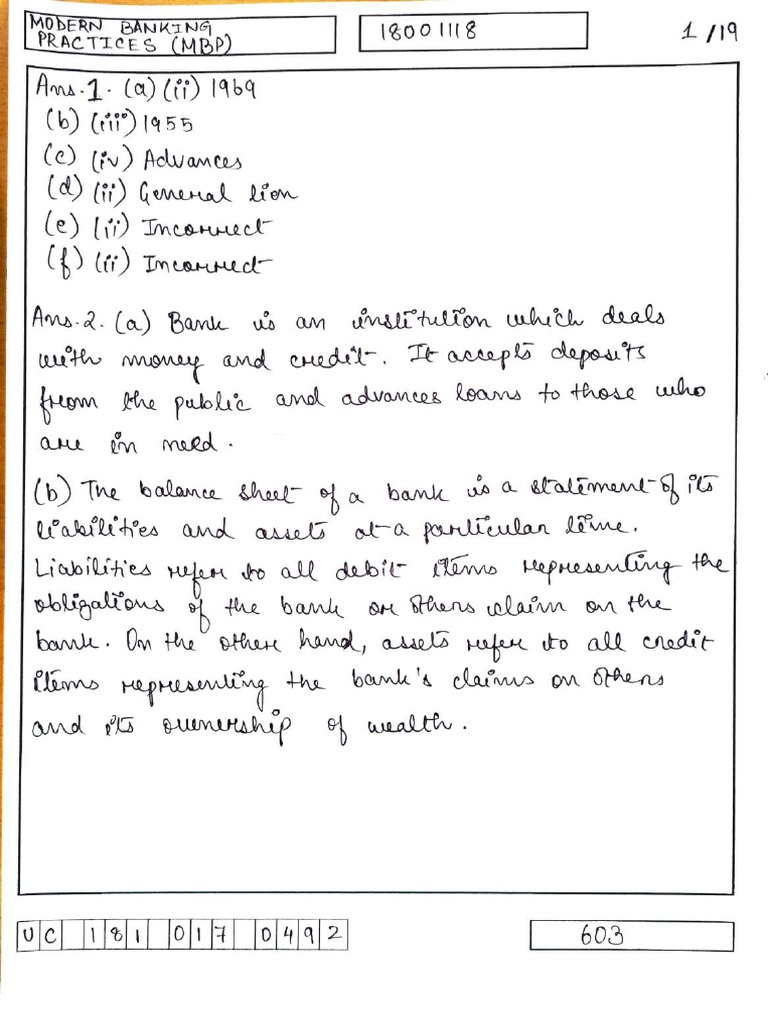 MODERN BANKING
PRACTICES (MBP)
18001118
1/19
Ans.1. (a) (ii) 1969
(b) (iii) 1955
(c) (iv) Advances
(d) (ii) General lion
(e) (ii) Incorrect
(f) (ii) Incorrect
Ans.2. (a) Bank is an institution which deals
with money and credit. It accepts deposits
from the public and advances loans to those who
are in need.
(b) The balance sheet of a bank is a statement of its
liabilities and assets at a particular time.
Liabilities refer to all debit items representing the
obligations of the bank or others claim on the
bank. On the other hand, assets refer to all credit
items representing the bank's claims on others
and its ownership of wealth.
UC 181 017 0492
603